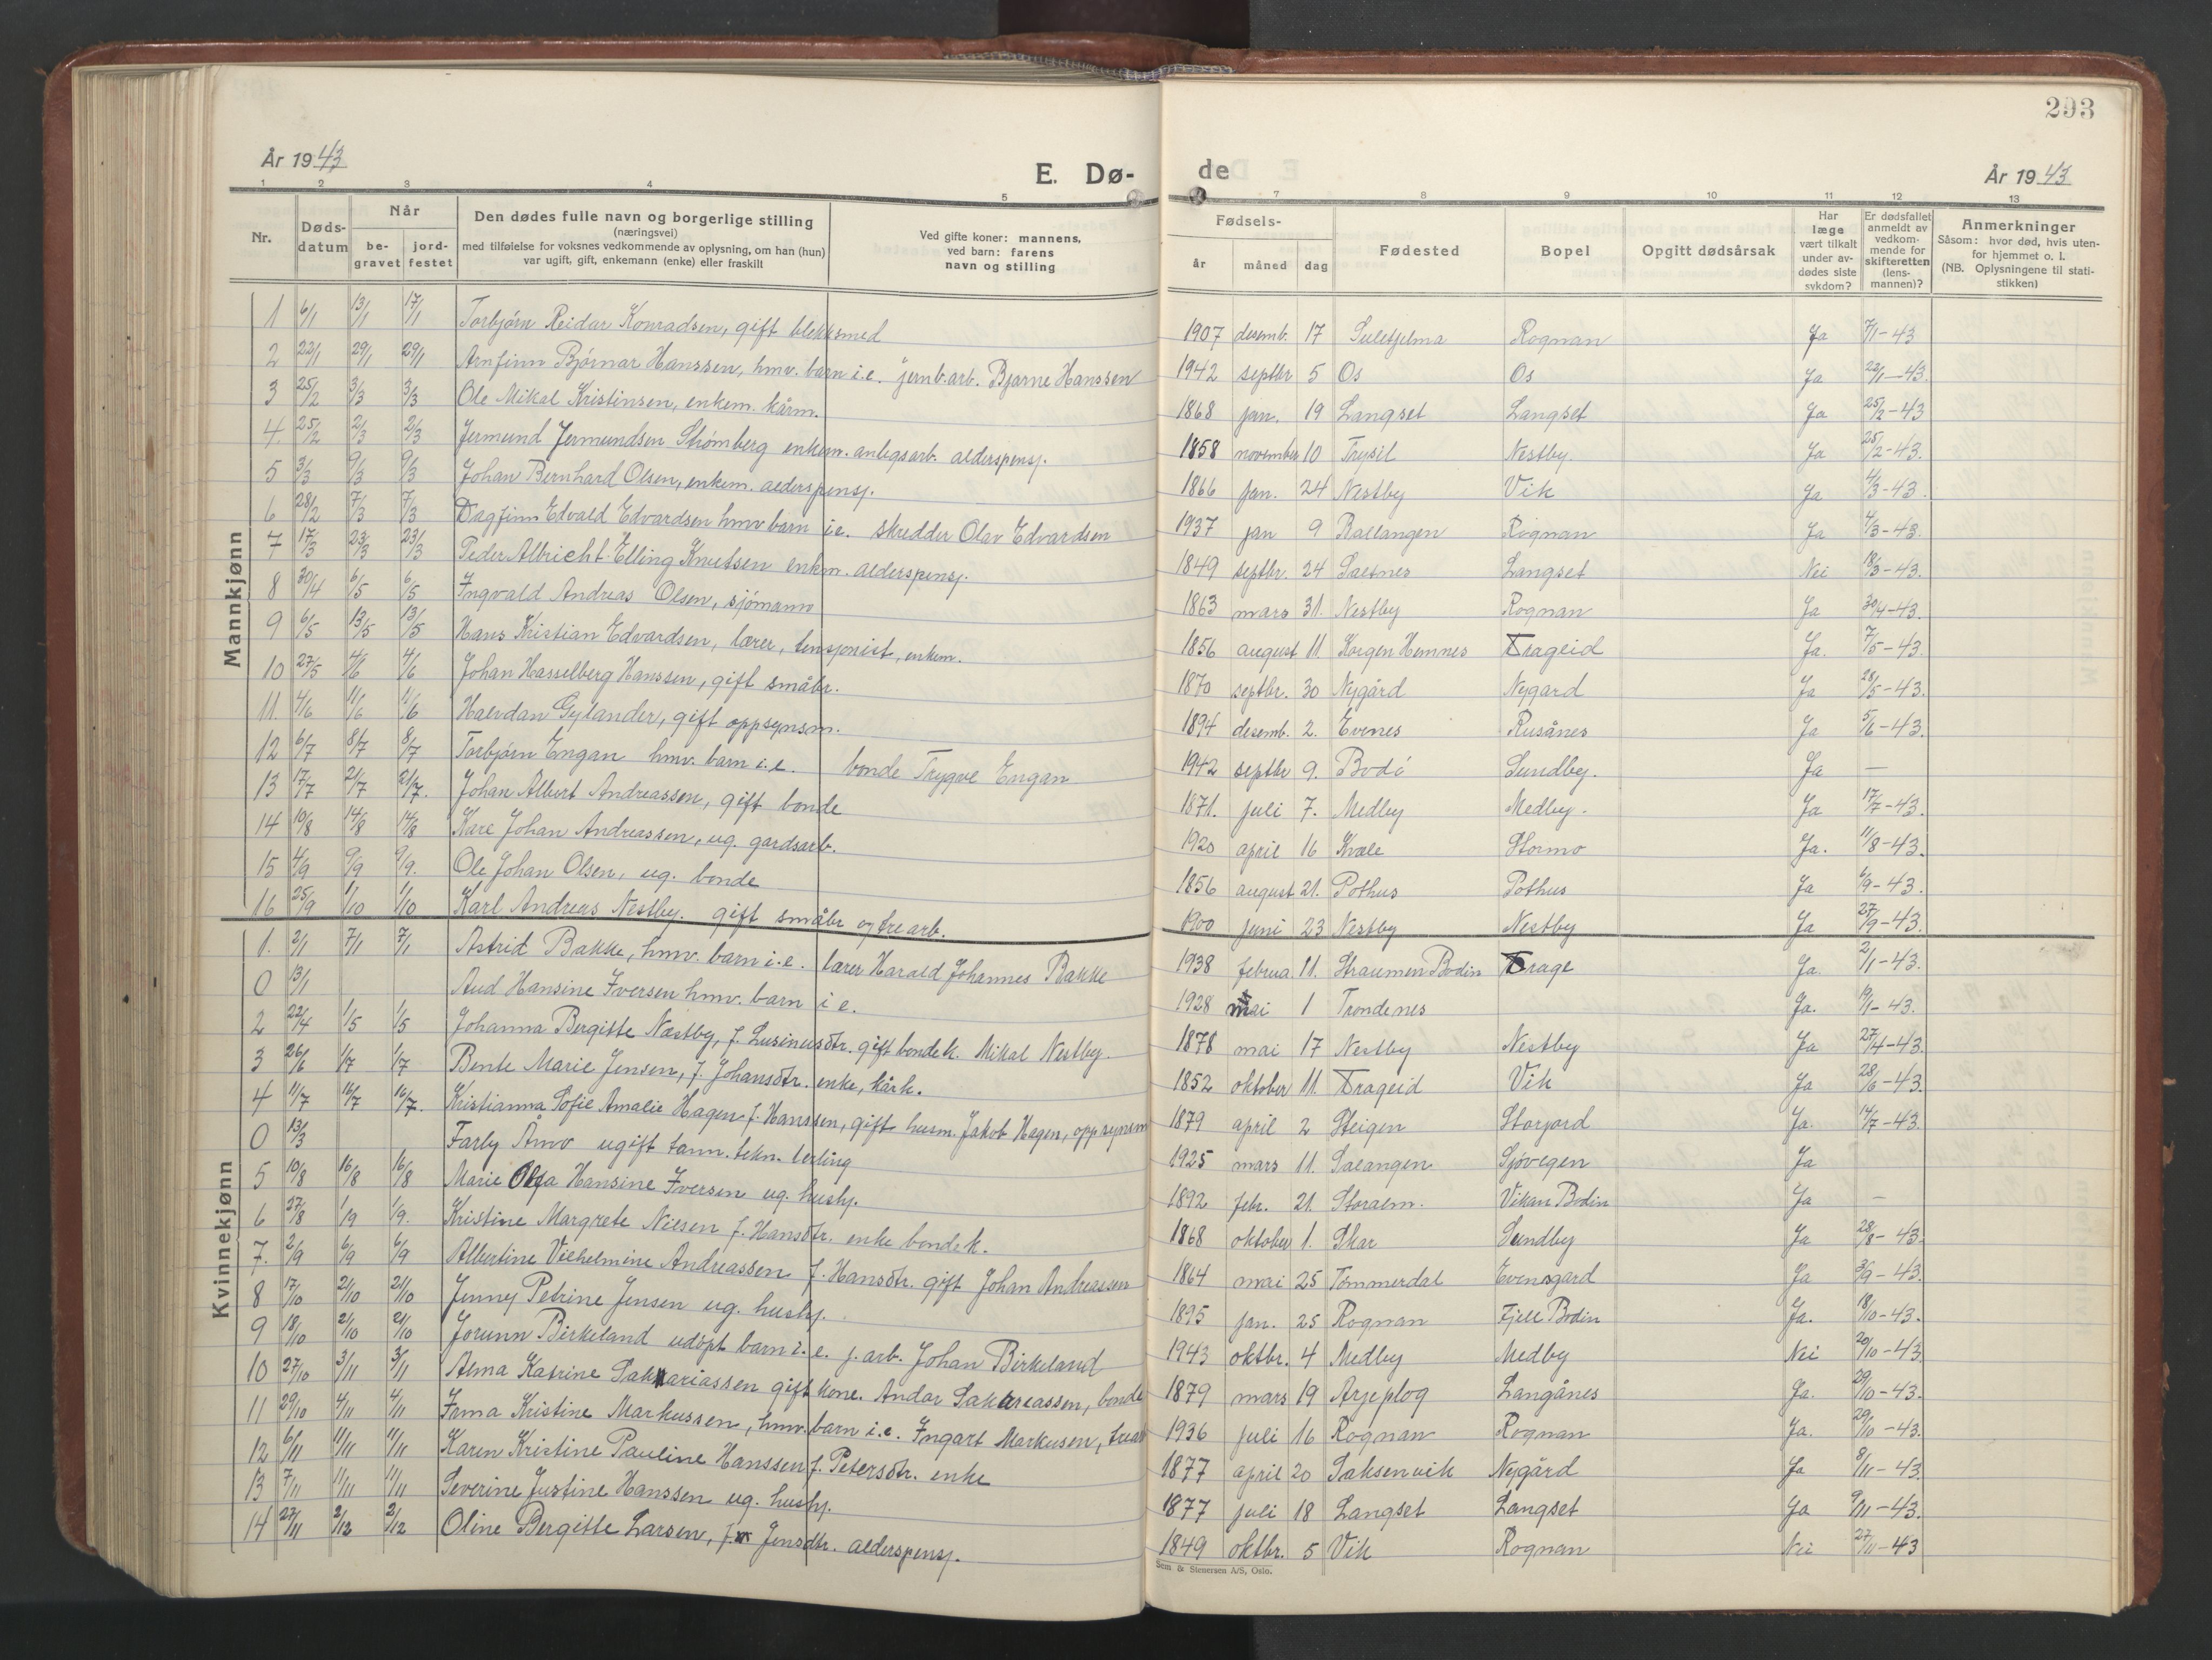 293
År 1943
E. Dø-
de
År 1943
1 2 3 4 5 7 8 9 10 11 12 13
Nr. Døds-datum Når be-gravet jord-festet Den dødes fulle navn og borgerlige stilling (næringsvei) med tilføielse for voksnes vedkommende av oplysning, om han (hun) var ugift, gift, enkemann (enke) eller fraskilt Ved gifte koner: mannens, ved barn: farens navn og stilling Fødsels- år måned dag Fødested Bopel Opgitt dødsårsak Har læge vært tilkalt under av-dødes siste sykdom? Er dødsfallet anmeldt av vedkom-mende for skifteretten (lens-mannen)? Anmerkninger Såsom: hvor død, hvis uten-for hjemmet o. l. (NB. Oplysningene til stati-stikken)
Mannkjønn
1 6/1 13/1 17/1 Torbjørn Reidar Konradsen, gift blekksmed 1907 desemb. 17 Sulitjelma Rognan Ja 7/1-43
2 22/1 29/1 29/1 Arnfinn Bjørnar Hanssen, hmv. barn i.e. jernb.arb. Bjarne Hanssen 1942 septbr 5 Os Os Ja 22/1-43.
3 25/2 3/3 3/3 Ole Mikal Kristinsen, enkem. kårm. 1868 jan. 19 Langset Langset Ja 25/2-43
4. 25/2 2/3 2/3 Jermund Jermundsen Strømberg enkem. anlegsarb. alderspensj. 1858 november 10 Trysil Nestby. Ja 25/2-43.
5 3/3 9/3 9/3 Johan Bernhard Olsen, enkem. alderspensj. 1866 jan. 24 Nestby Vik Ja 4/3-43.
6 28/2 7/3 7/3 Dagfinn Edvald Edvardsen hmv barn i.e. skredder Olav Edvardsen 1937 jan 9 Ballangen Rognan Ja 4/3-43.
7 17/3 23/3 23/3 Peder Albricht Elling Knutsen enkm. alderspensj. 1849 septbr. 24 Saltnes Langset Nei 18/3-43.
8 30/4 6/5 6/5 Ingvald Andreas Olsen, sjømann 1863 mars 31. Nestby Rognan Ja 30/4-43.
9 6/5 13/5 13/5 Hans Kristian Edvardsen, lærer, pensjonist, enkem. 1856 august 11. Korgen Hemnes Drageid Ja. 7/5-43.
10 27/5 4/6 4/6 Johan Hasselberg Hanssen, gift småbr. 1870 septbr. 30 Nygård Nygard Ja 28/5-43.
11. 4/6 11/6 11/6 Halvdan Gylander, gift oppsynsm. 1894 desemb. 2. Evenes Rusånes Ja 5/6-43.
12 6/7 8/7 8/7 Torbjørn Engan hmv. barn i.e. bonde Trygve Engan 1942 septbr 9. Bodø Sundby. Ja —
13 17/7 21/7 21/7. Johan Albert Andreassen, gift bonde 1871. juli 7. Medby Medby. Ja 17/7-43.
14 10/8 14/8 14/8 Kare Johan Andreassen, ug. gardsarb. 1920 april 16 Kvæle Stormo Ja. 11/8-43.
15 4/9 9/9 9/9. Ole Johan Olsen, ug. bonde 1856 august 21. Pothus Pothus Ja 6/9-43.
16 25/9 1/10 1/10 Karl Andreas Nestby. gift småbr og trearb. 1900 juni 23 Nestby Nestby Ja 27/9-43.
Kvinnekjønn
1. 2/1 7/1 7/1 Astrid Bakke, hmv. barn i.e. lærer Harald Johannes Bakke 1938 februa 11. Straumen Bodin Drage Ja. 2/1-43.
0 13/1 Aud Hansine Iversen hmv. barn i e. 1928 mai 1 Trondenes Ja. 19/1-43.
2 22/4 1/5 1/5 Johanna Bergitte Næstby, f. Lusinusdtr. gift bondek. Mikal Nestby. 1878 mai 17 Nestby Nestby Ja 27/4-43.
3 26/6 1/7 1/7 Bente Marie Jensen, f. Johansdtr. enke, kårk. 1852 oktober 11. Drageid Vik Ja 28/6-43.
4 11/7 16/7 16/7. Kristianna Sofie Amalie Hagen f. Hanssen, gift husm. Jakob Hagen, oppsynsm 1879 april 2 Steigen Storjord Ja. 14/7-43.
0 13/3 Farly Åmo ugift tann.tekn. lerling 1925 mars 11. Salangen Sjøvegen Ja
5 10/8 16/8 16/8 Marie Olga Hansine Iversen ug. hushj. 1892 febr. 21. Storalm. Vikan Bodin Ja —
6 27/8 1/9 1/9. Kristine Margrete Nilsen f. Hansdtr. enke bondek. 1868 oktober 1. Skar Sundby Ja 28/8-43.
7. 2/9 6/9 6/9 Albertine Vilhelmine Andreassen f. Hansdtr. gift Johan Andreassen 1864 mai 25 Tømmerdal Evensgard Ja 3/9-43.
8 17/10 21/10 21/10 Jenny Petrine Jensen ug. hushj. 1895 jan. 25 Rognan Fjell Bodin Ja. 18/10-43.
9 18/10 21/10 21/10 Jorunn Birkeland udøpt barn i.e. j.arb. Johan Birkeland 1943 oktbr. 4 Medby Medby Nei 20/10-43.
10 27/10 3/11 3/11 Alma Katrine Sakariassen gift kone. Andor Sakariassen, bonde 1879 mars 19 Arjeplog Langånes Ja. 29/10-43.
11 29/10 4/11 4/11 Irma Kristine Markussen, hmv. barn i.e. Ingart Markusen, trearb 1936 juli 16 Rognan Rognan Ja. 29/10-43.
12 6/11 11/11 11/11 Karen Kristine Pauline Hanssen f. Petersdtr. enke 1877 april 20 Saksenvik Nygård Ja 8/11-43.
13 7/11 11/11 11/11 Severine Justine Hanssen ug. hushj. 1877 juli 18 Langset Langset Ja 9/11-43.
14 23/11 2/12 2/12 Oline Bergitte Larsen, f. Jensdtr. alderspensj. 1849 oktbr. 5 Vik Rognan Nei 27/11-43
Sem & Stenersen A/S, Oslo.